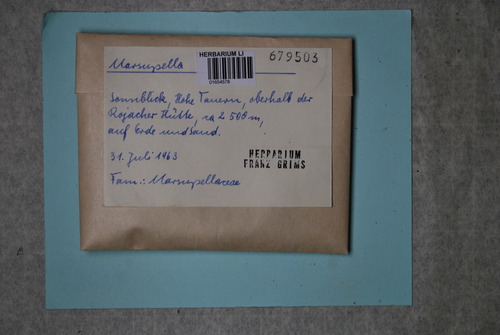 HERBARIUM LI
679503
Marsupella
01654578
Sonnblick, Hohe Tauern, oberhalb der
Rojacher Hütte, ca 2 500 m,
auf Erde und Sand.
31. Juli 1963
HERBARIUM
FRANZ GRIMS
Fam.: Marsupellaceae